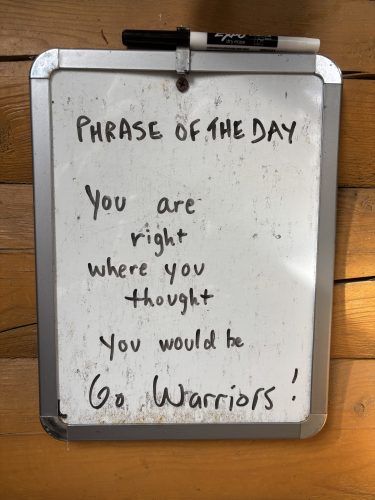 EXPO
PHRASE OF THE DAY
You are
right
where you
thought
you would be
Go Warriors!